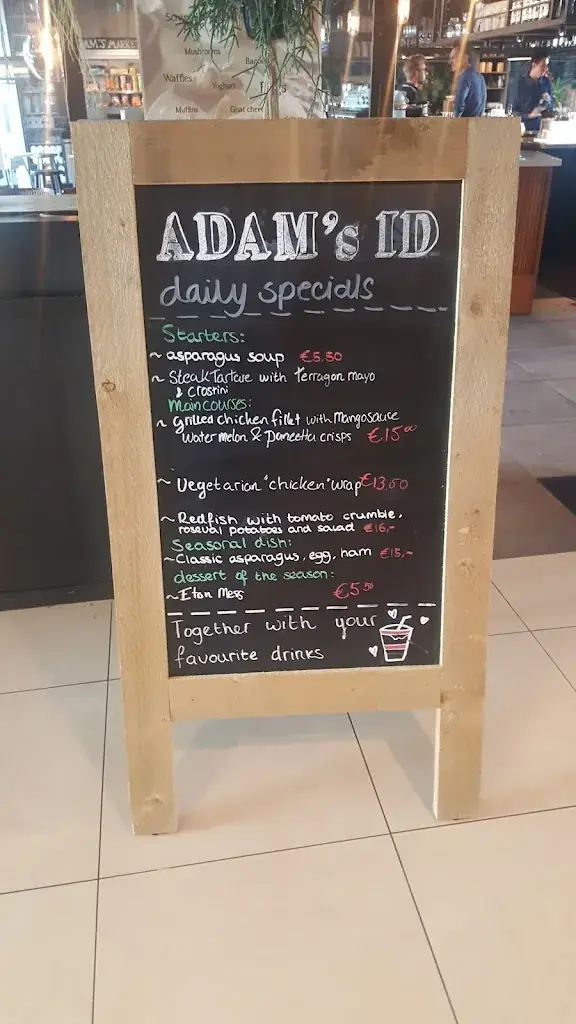 Mushrooms
Waffles
Yoghurt
Muffins
Goat chee
AM'S MARKE
ADAM's ID
daily specials
Starters:
~ asparagus soup €5.50
~ Steak Tartare with Terragon mayo
& crostini
Main courses:
~ grilled chicken fillet with Mangosauce
water melon & pancetta crisps €15⁰⁰
~ Vegetarian "chicken" wrap €13,50
~ Redfish with tomato crumble,
roseval potatoes and salad €16,-
Seasonal dish:
~ Classic asparagus, egg, ham €15,-
dessert of the season:
~ Eton Mess €5⁵⁰
Together with your
favourite drinks